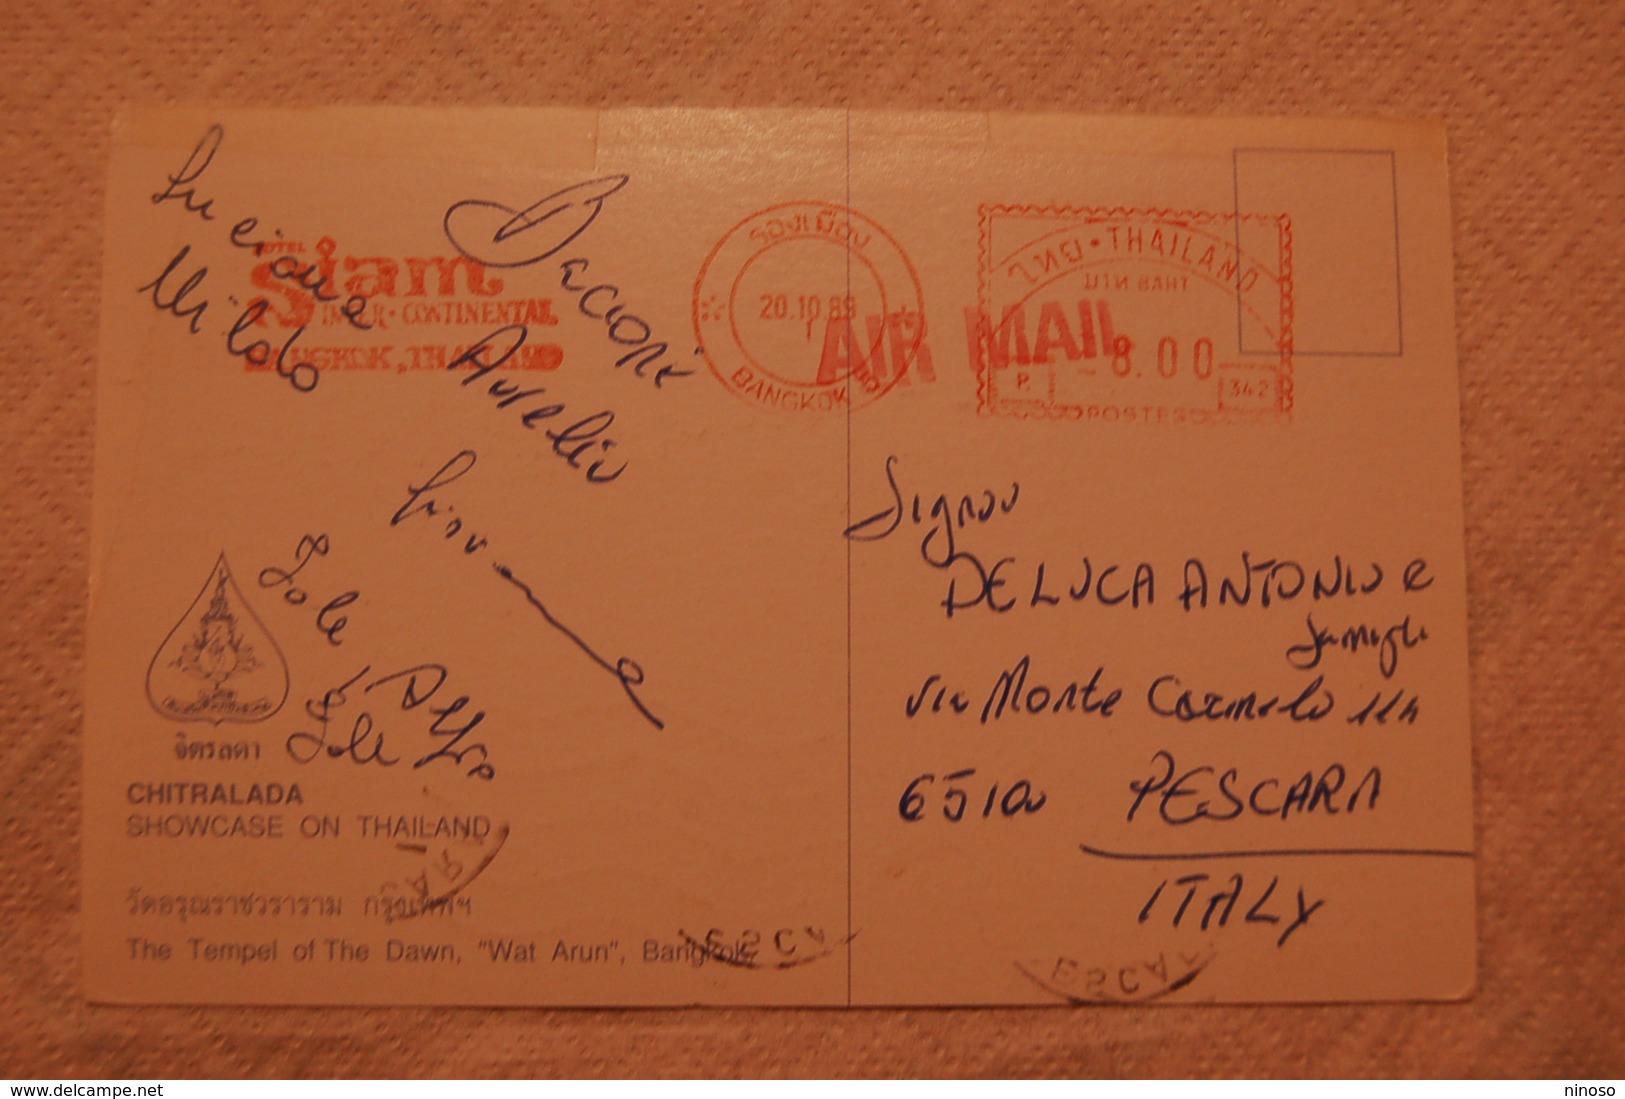 Luciana
Mildo
Bacioni
Aurelio
Iole
Iole
HOTEL
Siam
INTER·CONTINENTAL
BANGKOK, THAILAND
รองเมือง
20.10.89
BANGKOK
AIR MAIL
ไทย·THAILAND
บาท BAHT
8.00
P.
342
POSTES
Signor
DE LUCA ANTONIO e
famiglia
via Monte Carmelo
65100 PESCARA
ITALY
จิตรลดา
CHITRALADA
SHOWCASE ON THAILAND
วัดอรุณราชวราราม กรุงเทพฯ
The Tempel of The Dawn, "Wat Arun", Bangkok.
www.delcampe.net
ninoso